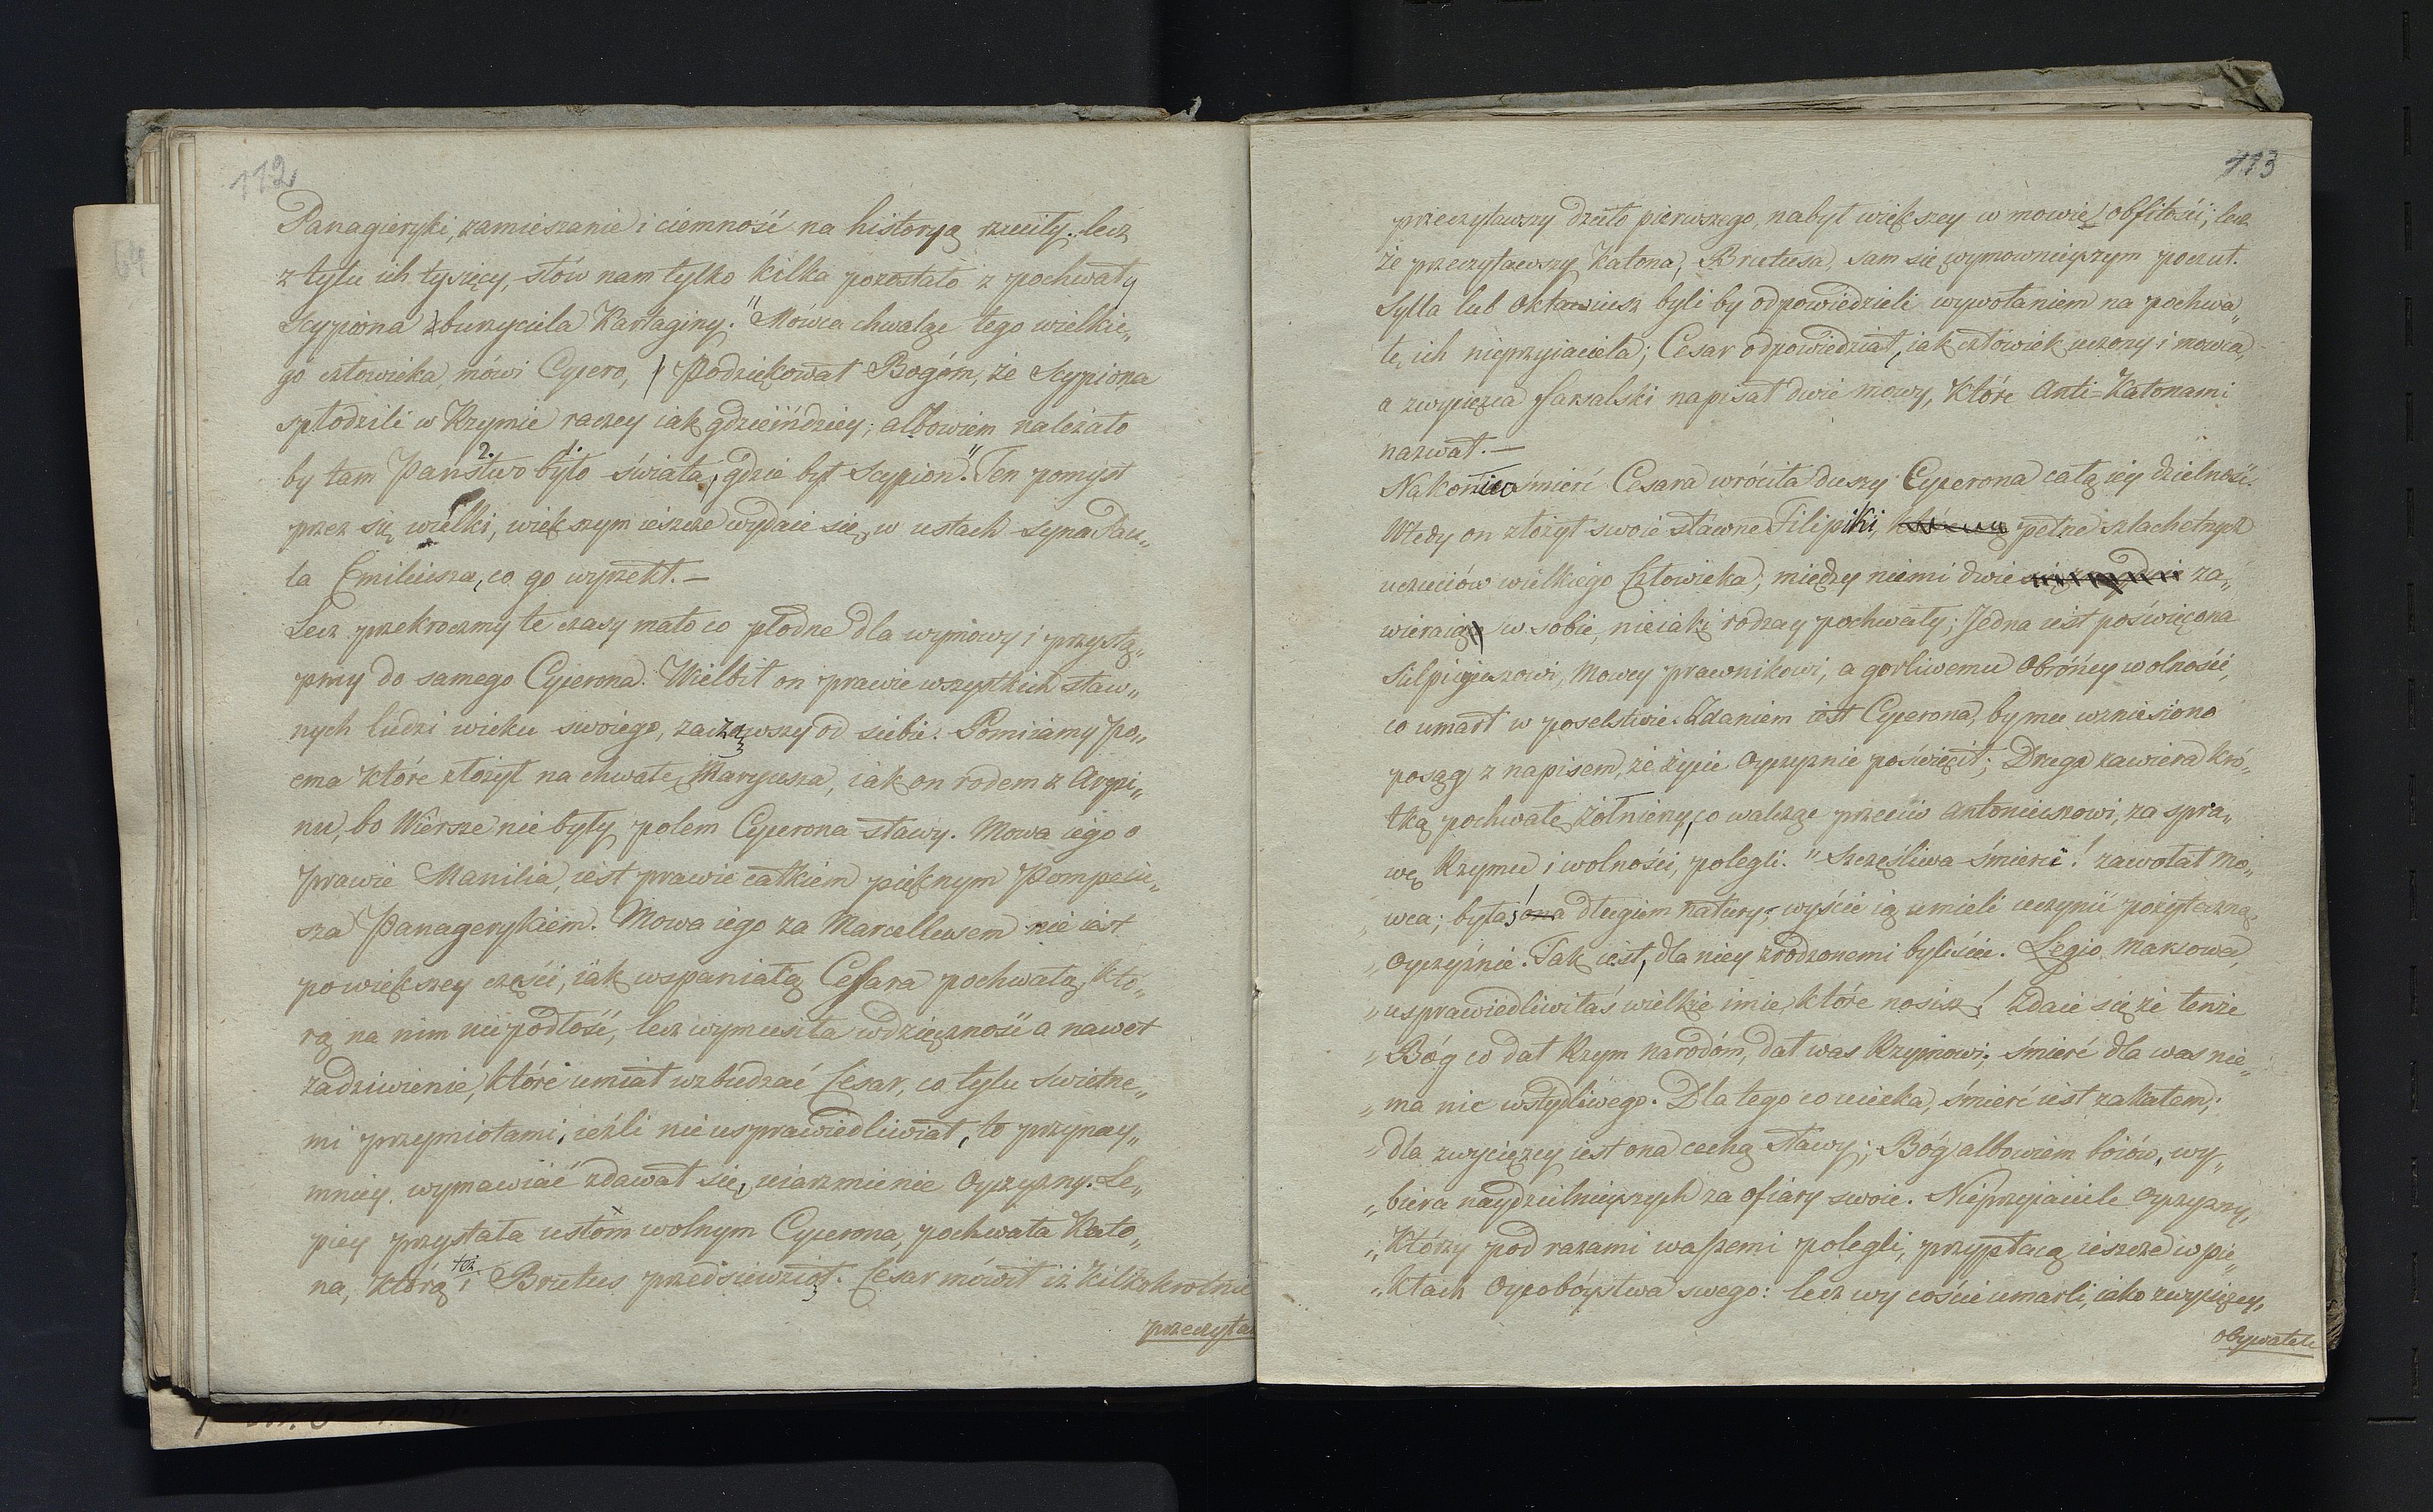 112
Panagieryki, zamieszanie i ciemność na historyą rzuciły. lecz
z tylu ich tysięcy, słów nam tylko kilka pozostało z pochwały
Scypiona zburzyciela Kartaginy. "Mówca chwaląc tego wielkie„
go człowieka, mówi Cycero, Podziękował Bogóm, że Scypiona
spłodzili w Rzymie raczey iak gdzieińdziey; albowiem należało
by tam Państwo było świata, gdzie był Scypion". Ten pomysł
2. 1.
przez się wielki, większym ieszcze wydaie się, w ustach syna Pau„
la Emiliusza, co go wyrzekł. —
Lecz przekroczmy te czasy mało co płodne dla wymowy i przystą„
pmy do samego Cycerona. Wielbił on prawie wszystkich sław„
nych ludzi wieku swoiego, zacząwszy od siebie. Pomiiamy po„
ema które złożył na chwałę Maryusza, iak on rodem z Arpi„
nu, bo Wiersze nie były polem Cycerona sławy. Mowa iego o
prawie Manilia, iest prawie całkiem pięknym Pompeiu„
sza Panagerykiem. Mowa iego za Marcellusem nie iest
powiększey części, iak wspaniałą Cesara pochwałą, któ„
rą na nim nie podłość, lecz wymusiła wdzięczność a nawet
zadziwienie, które umiał wzbudzać Cesar, co tylu świetne„
mi przymiotami, ieżli nie usprawiedliwiał, to przynay„
mniey wymawiać zdawał się, uiarzmienie Oyczyzny. Le„
piey przystała ustom wolnym Cycerona, pochwała Kato„
na, którą też i Brutus przedsiewziął. Cesar mówił iż kilkokrotnie
przeczyta
113
przeczytawszy dzieło pierwszego, nabył większey w mowie obfitości; lecz
że przeczytawszy Katona, Brutusa, sam się wymownieyszym poczuł.
Sylla lub Oktawiusz byli by odpowiedzieli wywołaniem na pochwa„
łę, ich nieprzyiaciela; Cesar odpowiedział, iak człowiek uczony i mowca,
a zwycięzca Farsalski napisał dwie mowy, które Anti=Katonami
nazwał. —
Nakoniec śmierć Cesara wróciła duszy Cycerona całą iey dzielność.
Wtedy on złożył swoie sławne Filipiki, pełne szlachetnych
uczuciów wielkiego Człowieka; między niemi dwie za„
wieraią w sobie, nieiaki rodzay pochwały; Jedna iest poświęcona
Sulpicyuszowi, Mowcy prawnikowi, a gorliwemu Obrońcy wolności,
co umarł w poselstwie. Zdaniem iest Cycerona, by mu wzniesiono
posąg z napisem, że życie Oyczyznie poświęcił; Druga zawiera kró„
tką pochwałę żołnierzy, co walcząc przeciw Antoniuszowi, za spra„
wę Rzymu i wolności, polegli. "Szczęśliwa śmierci! zawołał Mo„
wca; byłaś ona długiem natury; wyście ią umieli uczynić pożyteczną
„ Oyczyźnie. Tak iest, dla niey zrodzonemi byliście. Legio Marsowa,
„ usprawiedliwiłaś wielkie imie, które nosisz! Zdaie się że tenże
„ Bóg co dał Rzym narodóm, dał was Rzymowi; śmierć dla was nie„
„ ma nic wstydliwego. Dla tego co ucieka, śmierć iest zakałem;
„ dla zwycięzcy iest ona cechą sławy; Bóg albowiem boiów, wy„
„ biera naydzielnieyszych za ofiary swoie. Nieprzyiaciele Oyczyzny,
„ którzy pod razami waszemi polegli, przypłacą ieszcze w pie„
„ kłach Oycobóystwa swego: lecz wy coście umarli, iako zwycięzcy,
obywatele